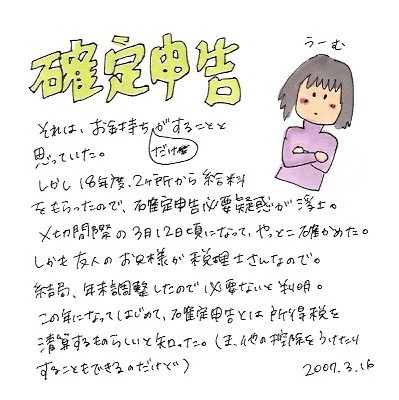 確定申告
うーむ
それは、お金持ちがすることと
だけが
思っていた。
しかし18年度、2ヶ所から給料
をもらったので、確定申告必要疑惑が浮上。
〆切間際の3月12日頃になって、やっとこ確かめた。
しかも友人のお父様が税理士さんなので。
結局、年末調整したので必要ないと判明。
この年になってはじめて、確定申告とは所得税を
清算するものらしいと知った。(ま、他の控除をうけたり
することもできるのだけど)
2007.3.16